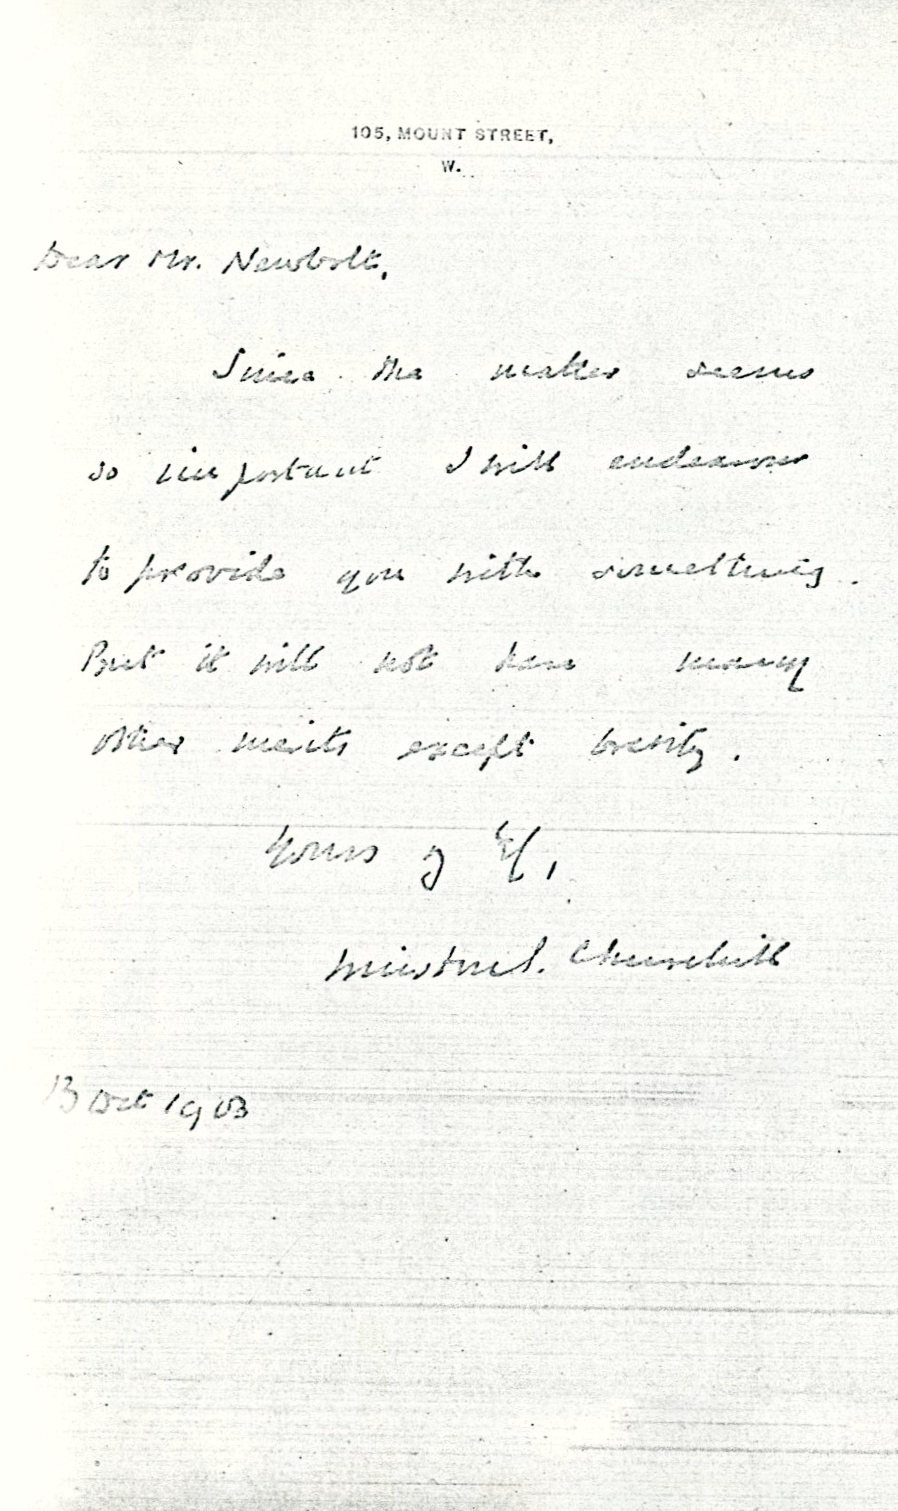 105, MOUNT STREET,
W.
Dear Mr. Newbolt,
Since the matter seems
so important I will endeavour
to provide you with something.
But it will not have many
other merits except brevity.
Yours
Winston S. Churchill
13 Oct 1903